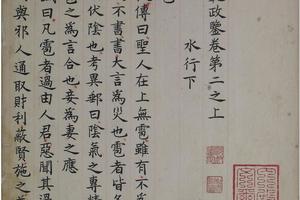 政鑒卷第二之上
水行下
傳曰聖人在上無雹雖有不為
不書書大言為災也雹者皆
伏陰也考異郵曰陰氣之專精
之為言合也妾為妻之應
曰凡雹者過由人君惡聞其過
與邪人通取財利蔽賢施之